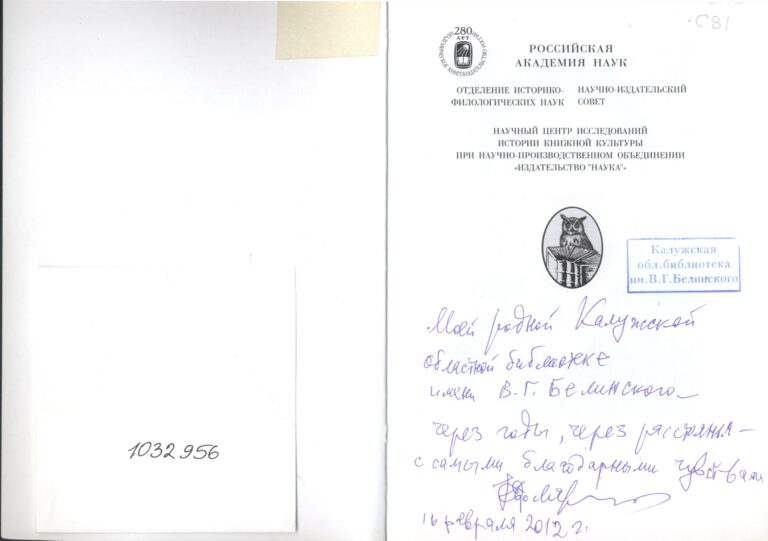 С81
280
ЛЕТ
РОССИЙСКАЯ
АКАДЕМИЯ НАУК
ОТДЕЛЕНИЕ ИСТОРИКО-
ФИЛОЛОГИЧЕСКИХ НАУК
НАУЧНО-ИЗДАТЕЛЬСКИЙ
СОВЕТ
НАУЧНЫЙ ЦЕНТР ИССЛЕДОВАНИЙ
ИСТОРИИ КНИЖНОЙ КУЛЬТУРЫ
ПРИ НАУЧНО-ПРОИЗВОДСТВЕННОМ ОБЪЕДИНЕНИИ
«ИЗДАТЕЛЬСТВО "НАУКА"»
Калужская
обл.библиотека
им.В.Г.Белинского
Моей родной Калужской
областной библиотеке
имени В.Г. Белинского
через годы, через расстоянья –
с самыми благодарными чувствами
16 февраля 2012 г.
1032956